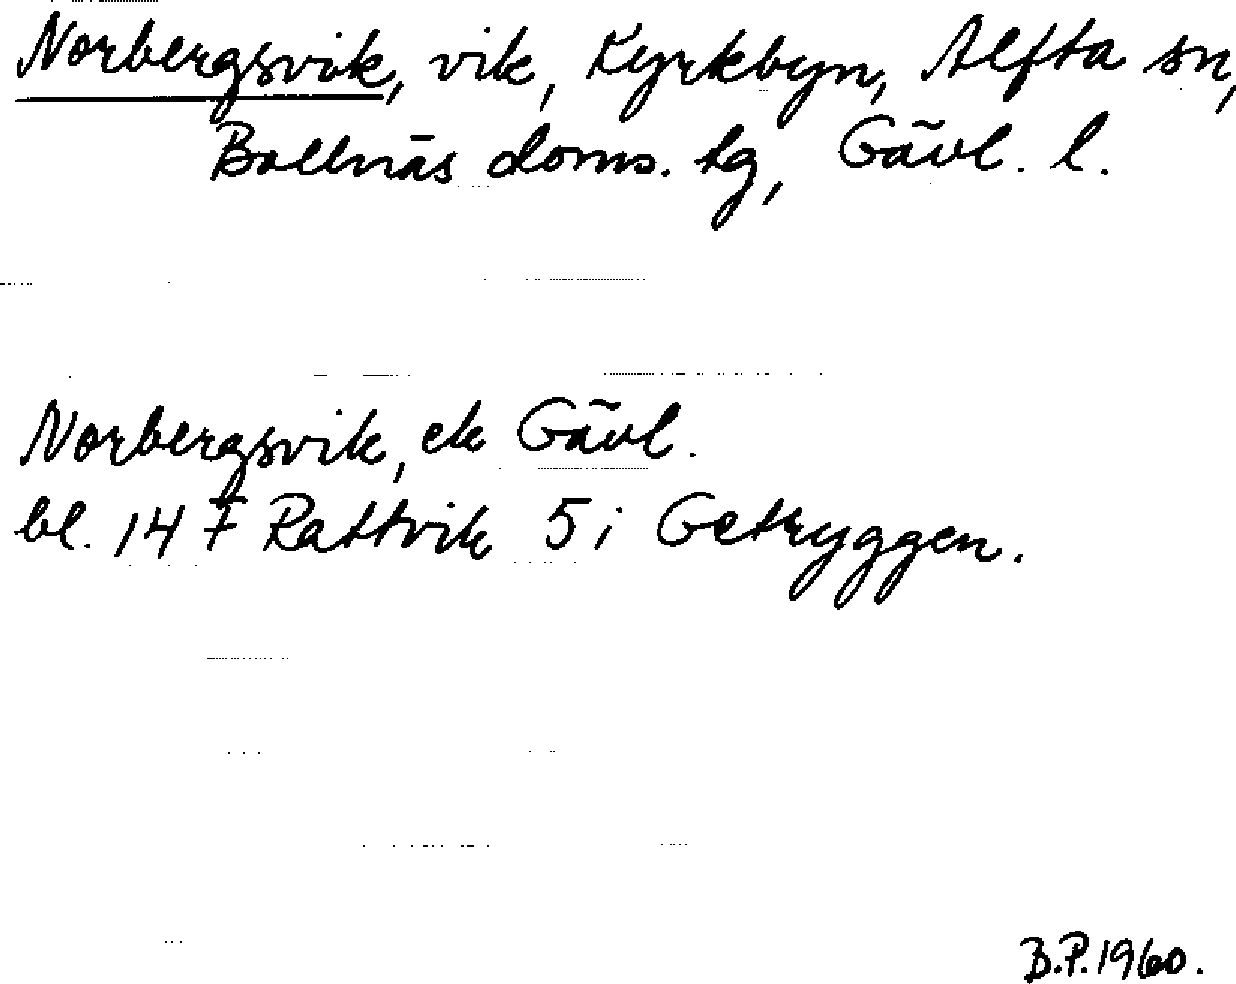 Norbergsvik, vik, Kyrkbyn, Alfta sn,
Bollnäs doms. tg, Gävl. l.
Norbergsvik, ek Gävl.
bl. 14 F Rättvik 5 i Getryggen.
B.P. 1960.